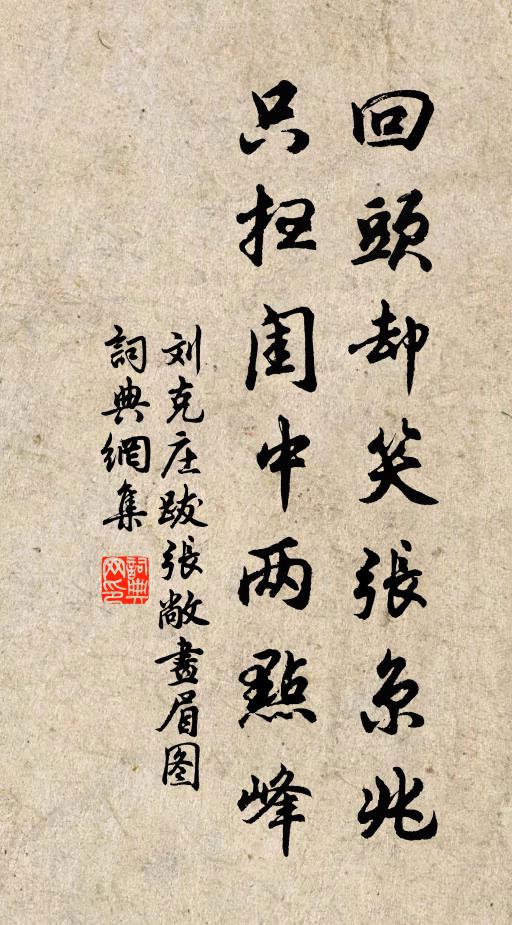 回頭却笑張京兆
只扫閨中两點峰
刘克庄跋張敞畫眉图
詞典網集
詞典網印